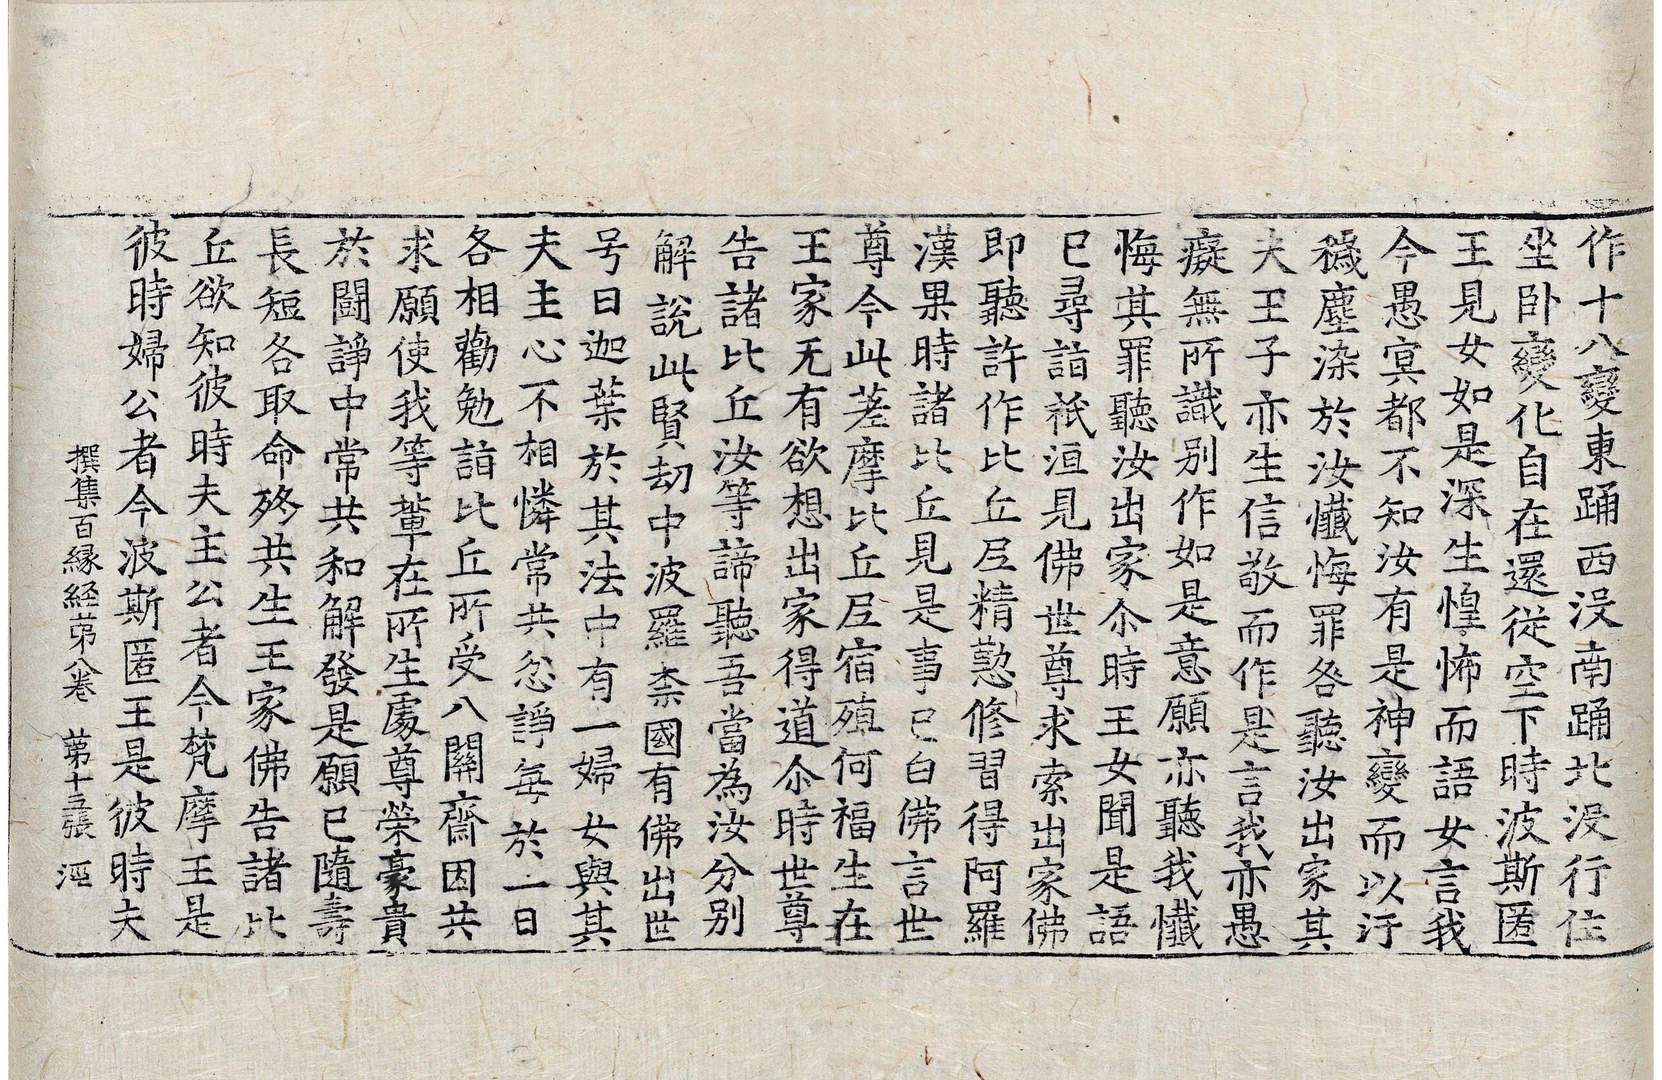 作十八變東踊西没南踊北没行住
坐卧變化自在還從空下時波斯匿
王見女如是深生惶怖而語女言我
今愚㝠都不知汝有是神變而以汙
穢塵染於汝懺悔罪咎聽汝出家其
夫王子亦生信敬而作是言我亦愚
癡無所識別作如是意願亦聽我懺
悔其罪聽汝出家尒時王女聞是語
已尋詣祇洹見佛世尊求索出家佛
即聽許作比丘尼精懃修習得阿羅
漢果時諸比丘見是事已白佛言世
尊今此差摩比丘尼宿殖何福生在
王家无有欲想出家得道尒時世尊
告諸比丘汝等諦聽吾當為汝分別
解說此賢劫中波羅㮈國有佛出世
号曰迦葉於其法中有一婦女與其
夫主心不相憐常共忿諍每於一日
各相勸勉詣比丘所受八關齋因共
求願使我等輩在所生處尊榮豪貴
於鬪諍中常共和解發是願已隨壽
長短各取命終共生王家佛告諸比
丘欲知彼時夫主公者今梵摩王是
彼時婦公者今波斯匿王是彼時夫
撰集百緣経苐八卷 苐十五張 𣴠